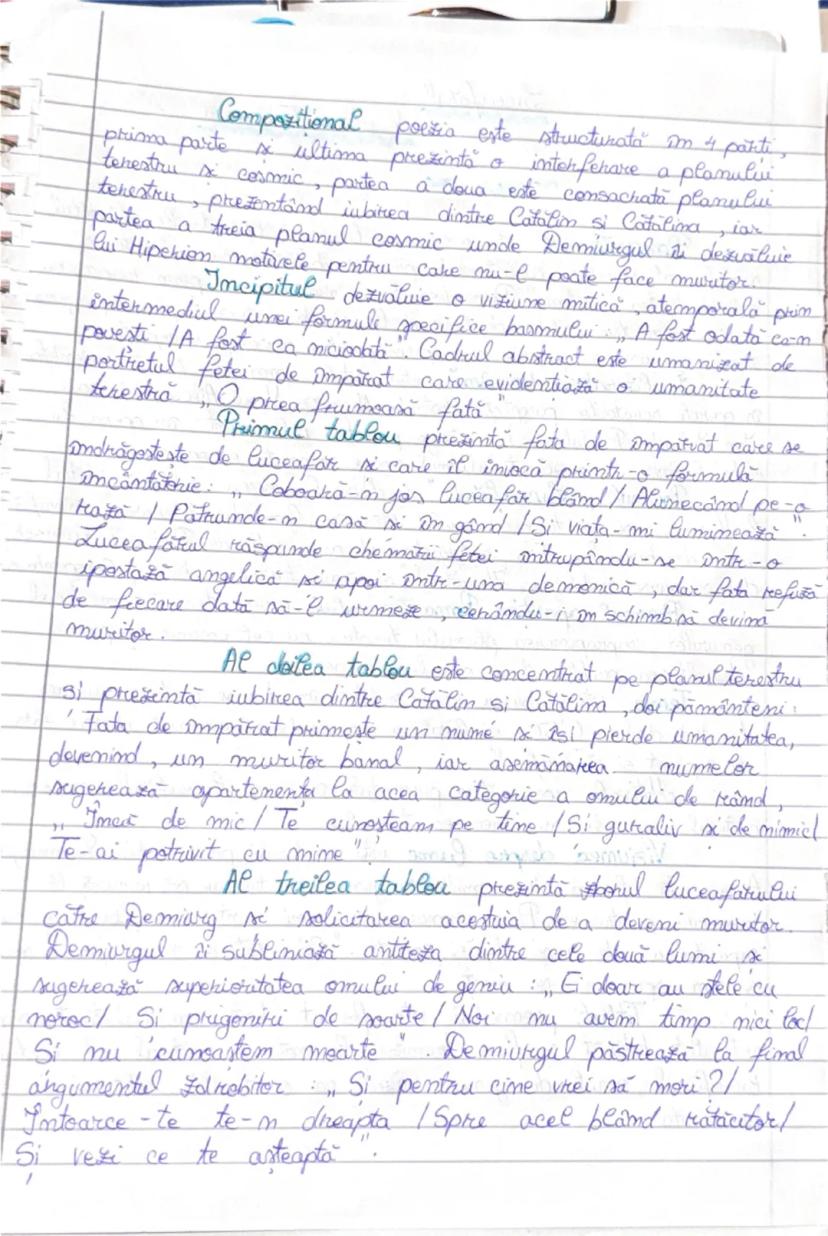 Compozițional poezia este structurată în 4 părți,
prima parte și ultima prezintă o interferare a planului
terestru și cosmic, partea a doua este consacrată planului
terestru, prezentând iubirea dintre Cătălin si Cătălina, iar
partea a treia planul cosmic unde Demiurgul îi dezvăluie
lui Hiperion motivele pentru care nu-l poate face muritor.
Incipitul dezvăluie o viziune mitică, atemporală prin
intermediul unei formule specifice basmului: „A fost odată ca-n
povesti /A fost ca niciodată". Cadrul abstract este umanizat de
portretul fetei de împărat care evidentiază o umanitate
terestră „O prea frumoasă fată"
Primul tablou prezintă fata de împărat care se
îndrăgostește de luceafăr și care îl invocă printr-o formulă
incântătorie: „Coboară-n jos luceafăr blând/ Alunecând pe-o
rază / Pătrunde-n casă si în gând /Si viața-mi luminează".
Luceafărul răspunde chemării fetei întrupându-se într-o
ipostază angelică si apoi într-una demonică, dar fata refuză
de fiecare dată să-l urmeze, cerându-i în schimb să devină
muritor.
Al doilea tablou este concentrat pe planul terestru
si prezintă iubirea dintre Cătălin si Cătălina, doi pământeni:
Fata de împărat primește un nume și își pierde umanitatea,
devenind, un muritor banal, iar asemănarea numelor
sugerează apartenența la acea categorie a omului de rând,
„Încă de mic/ Te cunosteam pe tine /Si guraliv și de nimic/
Te-ai potrivit cu mine"
Al treilea tablou prezintă zborul luceafărului
către Demiurg si solicitarea acestuia de a deveni muritor.
Demiurgul îi subliniază antiteza dintre cele două lumi si
sugerează superioritatea omului de geniu: „Ei doar au stele cu
noroc/ Si prigoniri de soarte/ Noi nu avem timp nici loc/
Si nu cunoastem moarte". Demiurgul păstrează la final
argumentul zdrobitor „Si pentru cine vrei să mori?/
Intoarce-te te-n dreapta /Spre acel blând rătăcitor/
Și vezi ce te așteaptă".